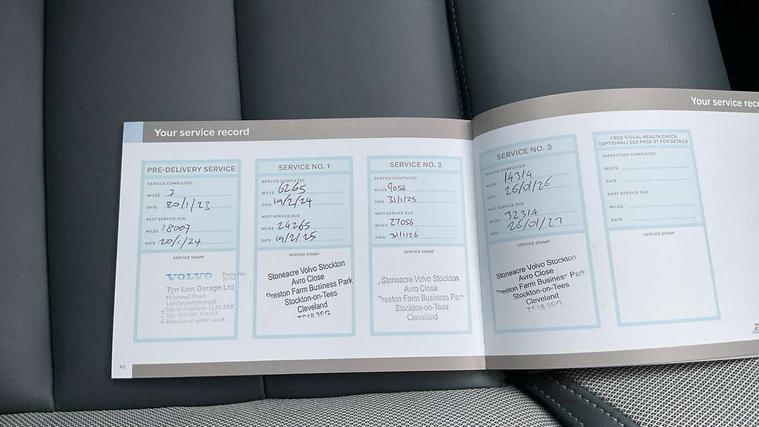 Your service record
PRE-DELIVERY SERVICE
SERVICE COMPLETED
MILES 7
DATE 20/1/23
NEXT SERVICE DUE
MILES 18007
DATE 20/1/24
SERVICE STAMP
VOLVO
Tyn Lon Garage Ltd
Holyhead Road
SERVICE NO. 1
SERVICE COMPLETED
MILES 6265
DATE 19/2/24
NEXT SERVICE DUE
MILES 24265
DATE 19/2/25
SERVICE STAMP
Stoneacre Volvo Stockton
Avro Close
Preston Farm Business Park
Stockton-on-Tees
Cleveland
TS18 3SG
SERVICE NO. 2
SERVICE COMPLETED
MILES 9056
DATE 31/1/25
NEXT SERVICE DUE
MILES 27056
DATE 31/1/26
SERVICE STAMP
Stoneacre Volvo Stockton
Avro Close
Preston Farm Business Park
Stockton-on-Tees
Cleveland
40
Your service rec
SERVICE NO. 3
SERVICE COMPLETED
MILES 14314
DATE 26/01/26
NEXT SERVICE DUE
MILES 32314
DATE 25/01/27
SERVICE STAMP
Stoneacre Volvo Stockton
Avro Close
Preston Farm Business Park
Stockton-on-Tees
Cleveland
TS18 3SG
FREE VISUAL HEALTH CHECK
(OPTIONAL) SEE PAGE 37 FOR DETAILS
INSPECTION COMPLETED
MILES
DATE
NEXT SERVICE DUE
MILES
DATE
SERVICE STAMP